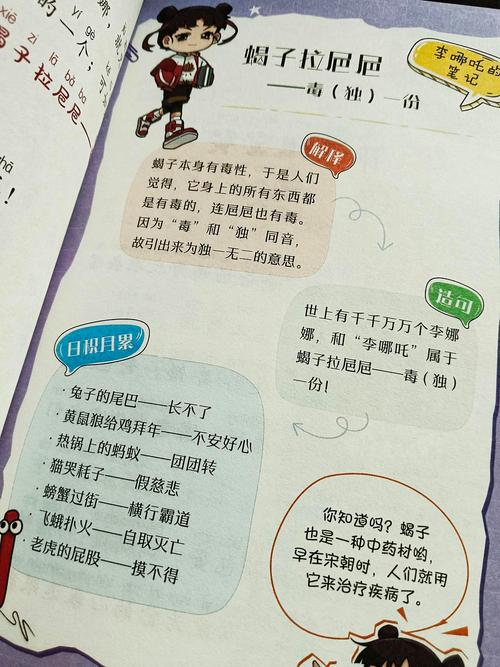 那，
yí gè
的一个；
xiē zi lā bǎ ba
蝎子拉㞎㞎
！
蝎子拉㞎㞎
——毒（独）一份
李哪吒的
笔记
解释
蝎子本身有毒性，于是人们
觉得，它身上的所有东西都
是有毒的，连㞎㞎也有毒。
因为“毒”和“独”同音，
故引出来为独一无二的意思。
造句
世上有千千万万个李娜
娜，和“李哪吒”属于
蝎子拉㞎㞎——毒（独）
一份！
日积月累
·兔子的尾巴——长不了
·黄鼠狼给鸡拜年——不安好心
·热锅上的蚂蚁——团团转
·猫哭耗子——假慈悲
·螃蟹过街——横行霸道
·飞蛾扑火——自取灭亡
·老虎的屁股——摸不得
你知道吗？蝎子
也是一种中药材哟，
早在宋朝时，人们就用
它来治疗疾病了。